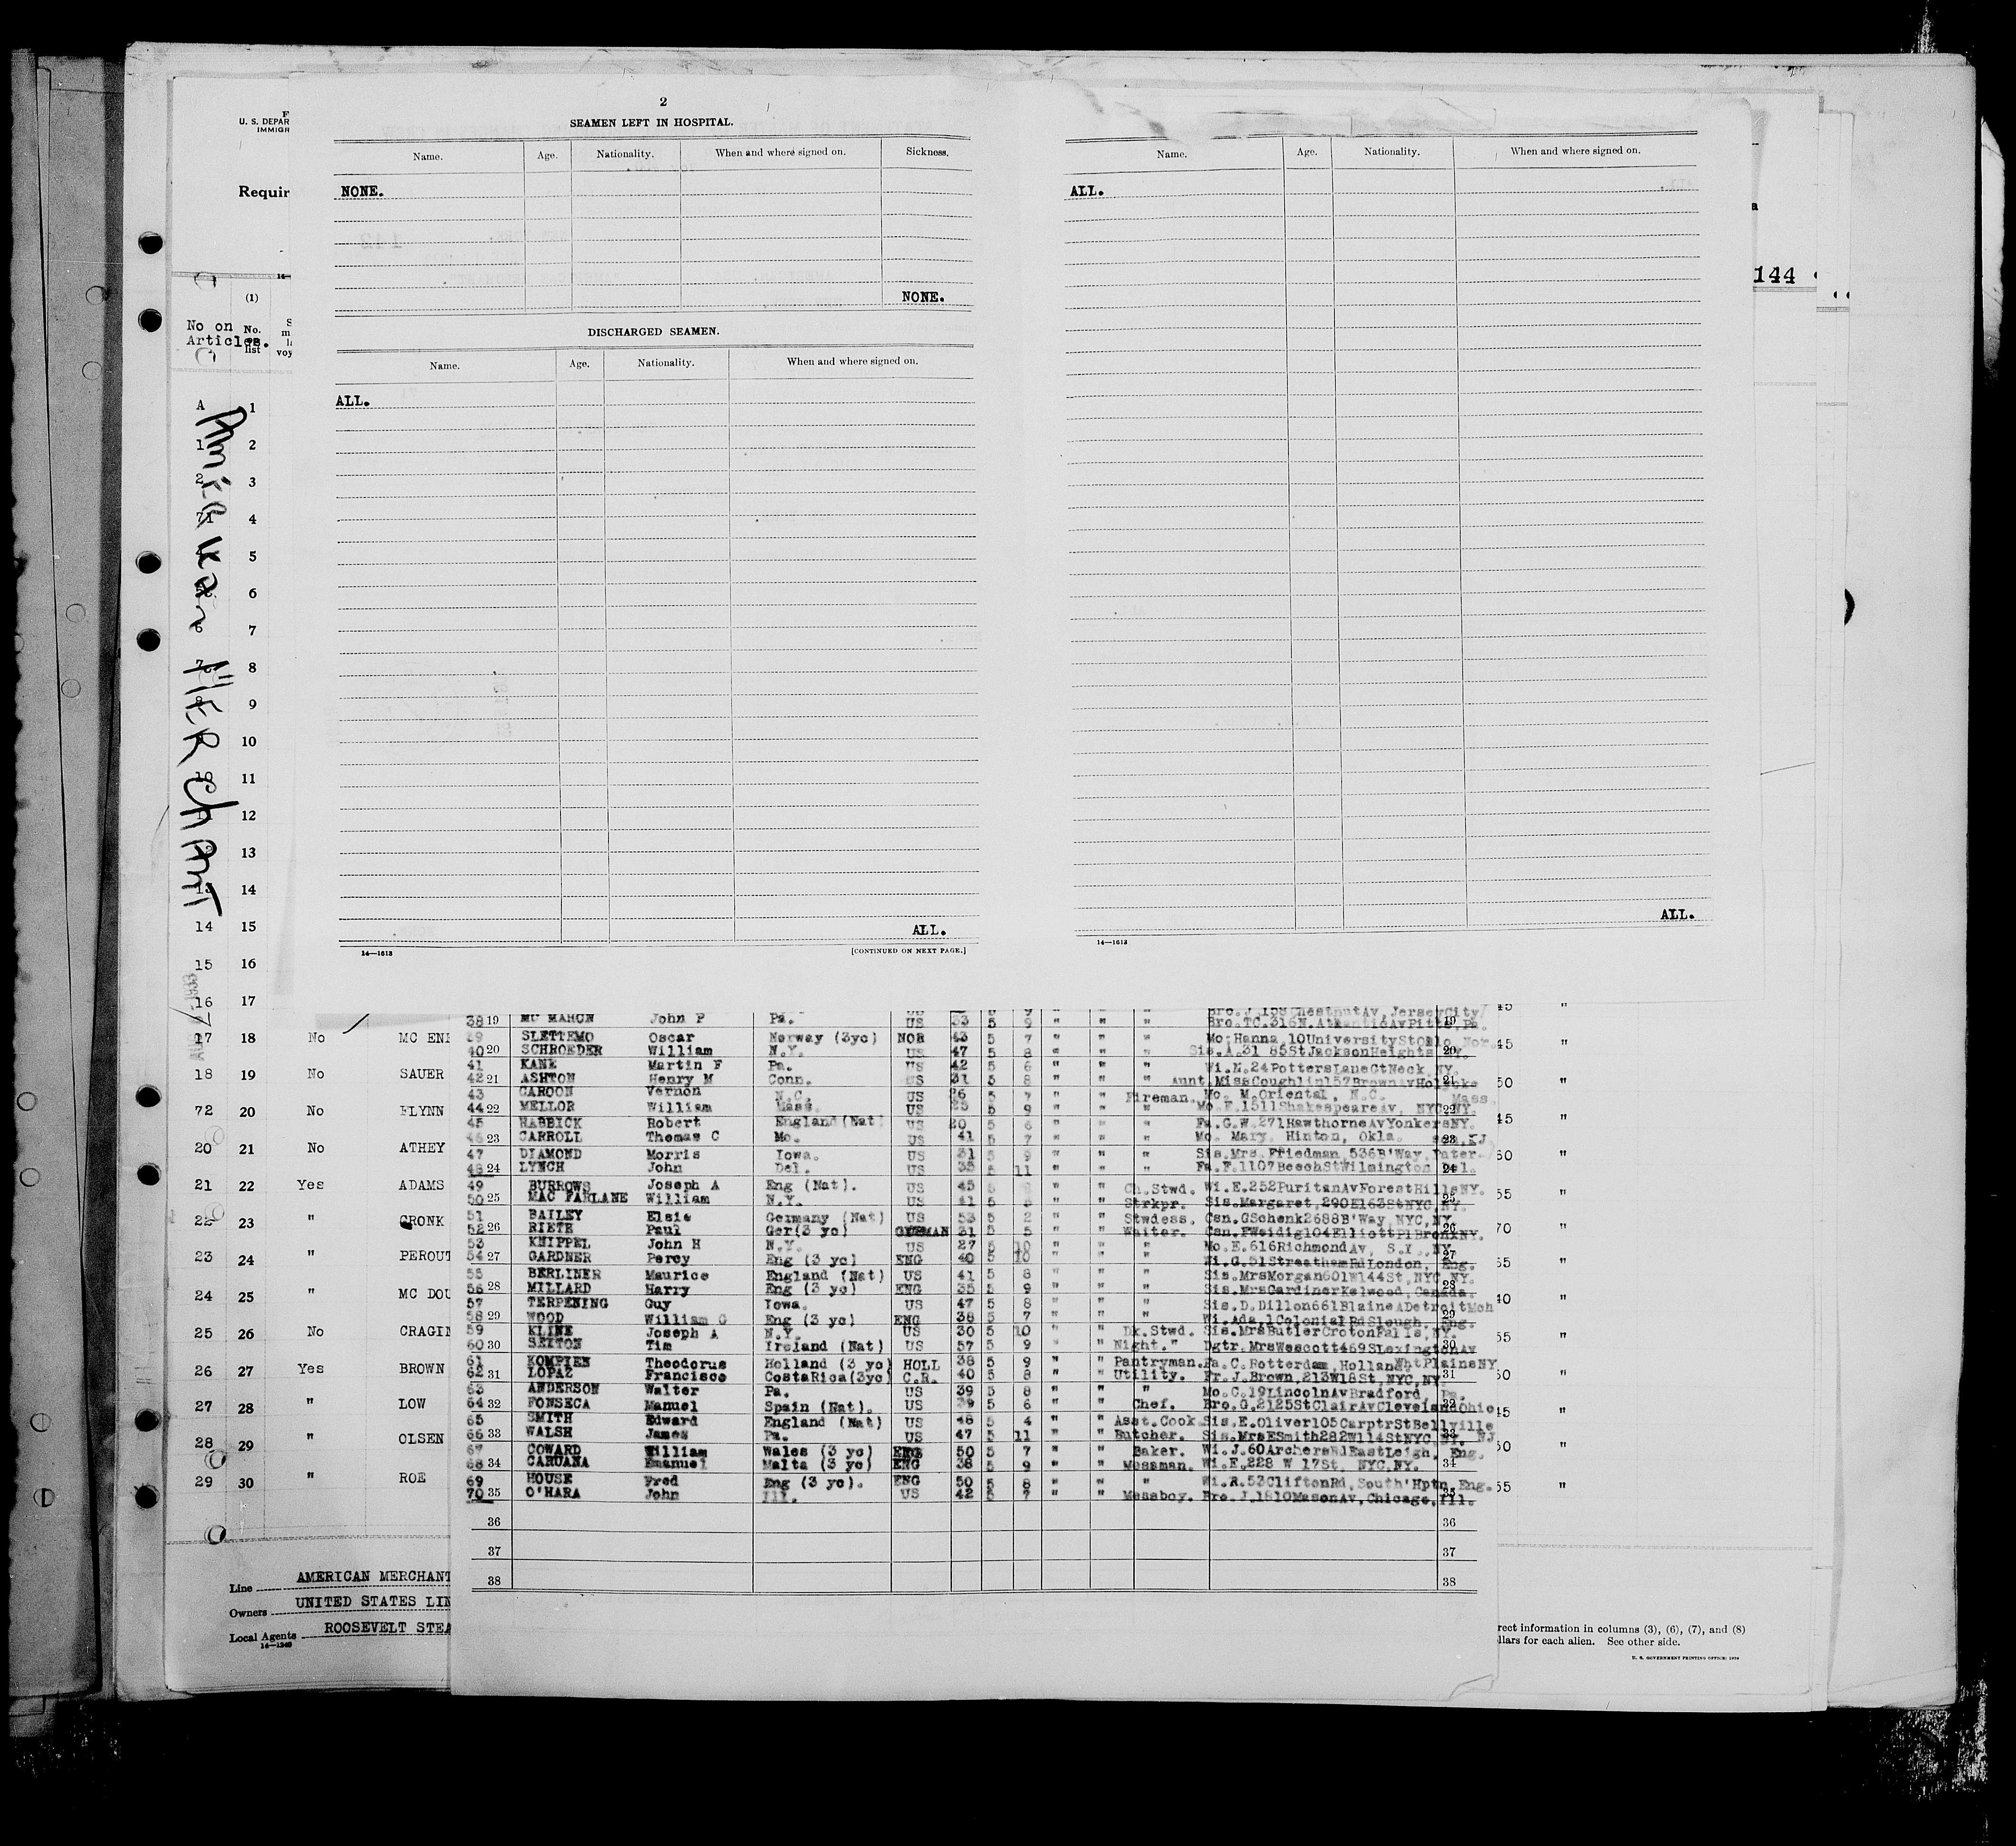 2
SEAMEN LEFT IN HOSPITAL.
Name. Age. Nationality. When and where signed on. Sickness.
NONE.
NONE.
DISCHARGED SEAMEN.
Name. Age. Nationality. When and where signed on.
ALL.
ALL.
14—1613 [CONTINUED ON NEXT PAGE.]
Name. Age. Nationality. When and where signed on.
ALL.
ALL.
14—1613
144
U. S. DEPAR
IMMIGR
Requir
(1)
No on Articles.
No. on list
AMERICAN MERCHANT
A 1
1 2
2 3
4
5
6
7
8
9
10
11
12
13
13 14
14 15
15 16
16 17
17 18 No MC ENE
18 19 No SAUER
72 20 No FLYNN
20 21 No ATHEY
21 22 Yes ADAMS
22 23 " CRONK
23 24 " PEROUT
24 25 " MC DOU
25 26 No CRAGIN
26 27 Yes BROWN
27 28 " LOW
28 29 " OLSEN
29 30 " ROE
38 19 MC MAHON John P Pa. US 33 5 9 " " " Bro. TC. 316N. AtlanticAvPitts, Pa.
39 SLETTEMO Oscar Norway (3yc) NOR 43 5 7 " " " Mo. Hanna 10UniversityStOslo Nor.
40 20 SCHROEDER William N.Y. US 47 5 8 " " " Sis. A. 31 85StJacksonHeights NY.
41 KANE Martin F Pa. US 42 5 6 " " " Wi. N. 24PottersLaneGtNeck NY.
42 21 ASHTON Henry M Conn. US 31 5 8 " " " Aunt MissCoughlin157BrownAvHolyoke Mass.
43 CAROON Vernon N.C. US 26 5 7 " " Fireman. Mo. M. Oriental, N.C.
44 22 MELLOR William Mass. US 25 5 9 " " " Mo. E. 1511ShakespeareAv, NYC NY.
45 HABBICK Robert England (Nat) US 20 5 6 " " " Fa. G.W. 271HawthorneAvYonkersNY.
46 23 CARROLL Thomas C Mo. US 41 5 7 " " " Mo. Mary Hinton, Okla.
47 DIAMOND Morris Iowa. US 31 5 9 " " " Sis. Mrs. Friedman, 536B'Way, Pater
48 24 LYNCH John Del. US 35 5 11 " " " Fa. F. 1107BeechStWilmington Del.
49 BURROWS Joseph A Eng (Nat). US 45 5 " " Ch. Stwd. Wi. E. 252PuritanAvForestHillsNY.
50 25 MAC FARLANE William N.Y. US 41 5 " " Strkpr. Sis. Margaret, 290E163StNYC, NY.
51 BAILEY Elsie Germany (Nat) US 53 5 2 " " Stwdess. Csn. GSchenk2688B'Way, NYC, NY
52 26 RIETE Paul Ger(3 yc) GERMAN 31 5 5 " " Waiter. Csn. FWeidig104ElliottPlBronxNY.
53 KNIPPEL John H N.Y. US 27 5 10 " " " Mo. E. 616RichmondAv, S.I., NY
54 27 GARDNER Percy Eng (3 yc) ENG 40 5 10 " " " Wi. G. 51StreathamRdLondon, Eng.
55 BERLINER Maurice England (Nat) US 41 5 8 " " " Sis. MrsMorgan601W144St, NYC NY.
56 28 MILLARD Harry Eng (3 yc) ENG 35 5 9 " " " Sis. MrsGardinerKelwood, Canada.
57 TERPENING Guy Iowa. US 47 5 8 " " " Sis. D. Dillon661BlaineADetroitMch
58 29 WOOD William G Eng (3 yc) ENG 38 5 7 " " " Wi. Ada, 1ColonialRdSlough, Eng.
59 KLINE Joseph A N.Y. US 30 5 10 " " Dk. Stwd. Sis. MrsButlerCrotonFalls, NY.
60 30 SEXTON Tim Ireland (Nat) US 57 5 9 " " Night. " Dgtr. MrsWescott469SLexingtonAv WhtPlainsNY
61 KOMPIEN Theodorus Holland (3 yc) HOLL 38 5 9 " " Pantryman. Fa. C. Rotterdam, Holland
62 31 LOPAZ Francisco CostaRica(3yc) C.R. 40 5 8 " " Utility. Fr. J. Brown, 213W18St, NYC, NY.
63 ANDERSON Walter Pa. US 39 5 8 " " " Mo. C. 19LincolnAvBradford, Pa.
64 32 FONSECA Manuel Spain (Nat). US 39 5 6 " " Chef. Bro. G. 2125StClairAvClevelandOhio
65 SMITH Edward England (Nat) US 48 5 4 " " Asst. Cook Sis. E. Oliver105CarptrStBellville NJ
66 33 WALSH James Pa. US 47 5 11 " " Butcher. Sis. MrsESmith282W114StNYC, NY.
67 COWARD William Wales (3 yc) ENG 50 5 7 " " Baker. Wi. J. 60ArchersRdEastLeigh, Eng.
68 34 CARUANA Emanuel Malta (3 yc) ENG 38 5 9 " " Messman. Wi. F. 228 W 17St, NYC, NY.
69 HOUSE Fred Eng (3 yc). ENG 50 5 8 " " " Wi. R. 53CliftonRd, South'Hptn Eng.
70 35 O'HARA John Ill. US 42 5 7 " " Messboy. Bro. J. 1810MasonAv, Chicago, Ill.
36 36
37 37
38 38
Line AMERICAN MERCHANT
Owners UNITED STATES LIN
Local Agents ROOSEVELT STEA
14—1240
rect information in columns (3), (6), (7), and (8)
llars for each alien. See other side.
U. S. GOVERNMENT PRINTING OFFICE